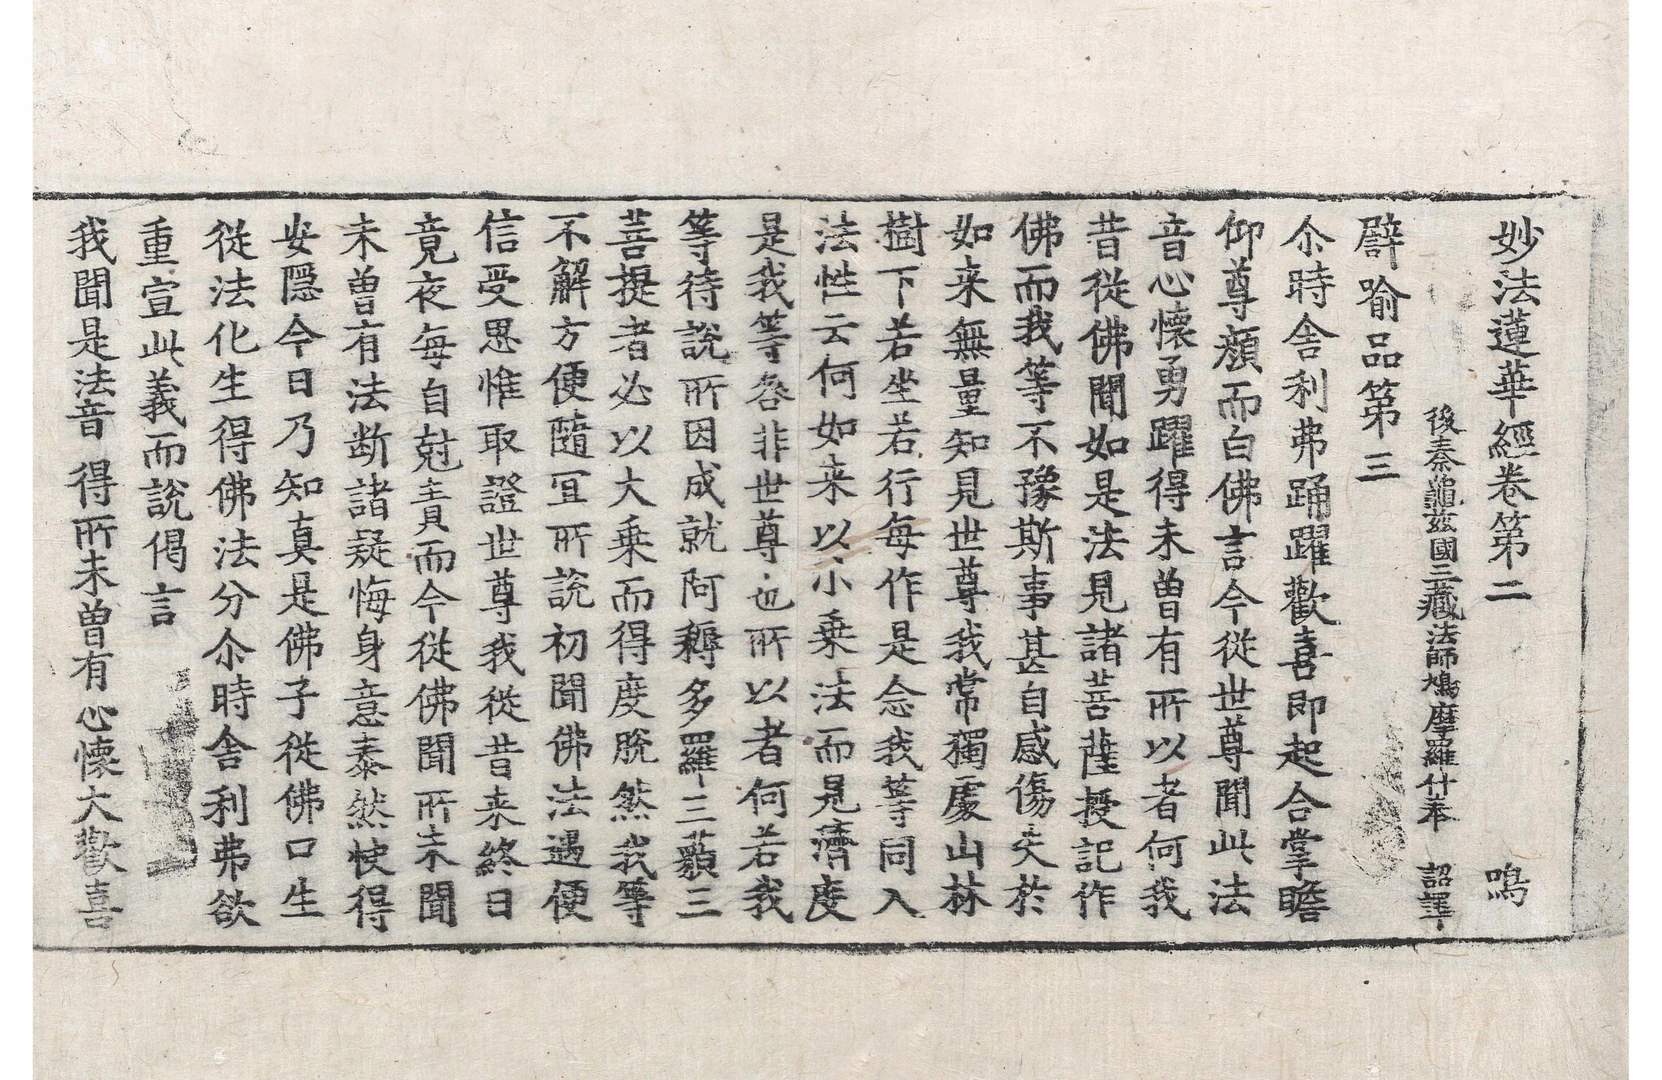 妙法蓮華經卷第二 鳴
後秦龜茲國三藏法師鳩摩羅什奉 詔譯
譬喻品第三
尒時舍利弗踊躍歡喜即起合掌瞻
仰尊顔而白佛言今從世尊聞此法
音心懷勇躍得未曽有所以者何我
昔從佛聞如是法見諸菩薩授記作
佛而我等不豫斯事甚自感傷失於
如来無量知見世尊我常獨處山林
樹下若坐若行每作是念我等同入
法性云何如来以小乗法而見濟度
是我等咎非世尊也所以者何若我
等待說所因成就阿耨多羅三藐三
菩提者必以大乗而得度脫然我等
不解方便隨冝所說初聞佛法遇便
信受思惟取證世尊我從昔来終日
竟夜每自尅責而今從佛聞所未聞
未曽有法断諸疑悔身意泰然快得
安隱今日乃知真是佛子從佛口生
從法化生得佛法分尒時舍利弗欲
重宣此義而說偈言
我聞是法音 得所未曽有 心懷大歡喜